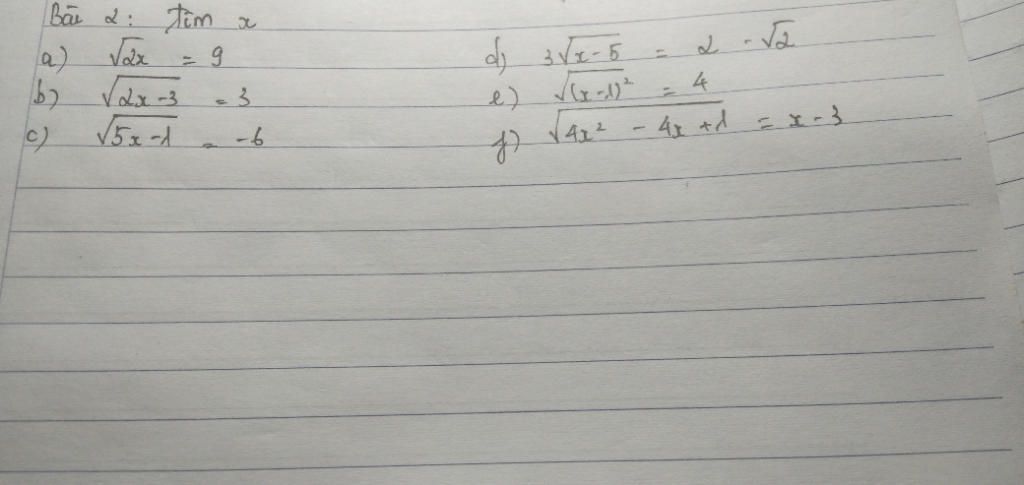 Bài 2: Tìm x
a) √2x = 9
b) √(2x-3) = 3
c) √(5x-1) = -6
d) 3√(x-5) = 2 - √2
e) √((x-1)²) = 4
f) √(4x² - 4x + 1) = x - 3